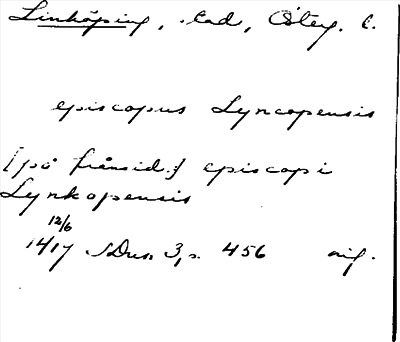 Linköping, stad, Östg. l.
episcopus Lyncopensis
[på frånsid.] episcopi
Lynkopensis
12/6
1417 SDns 3, s. 456 orig.